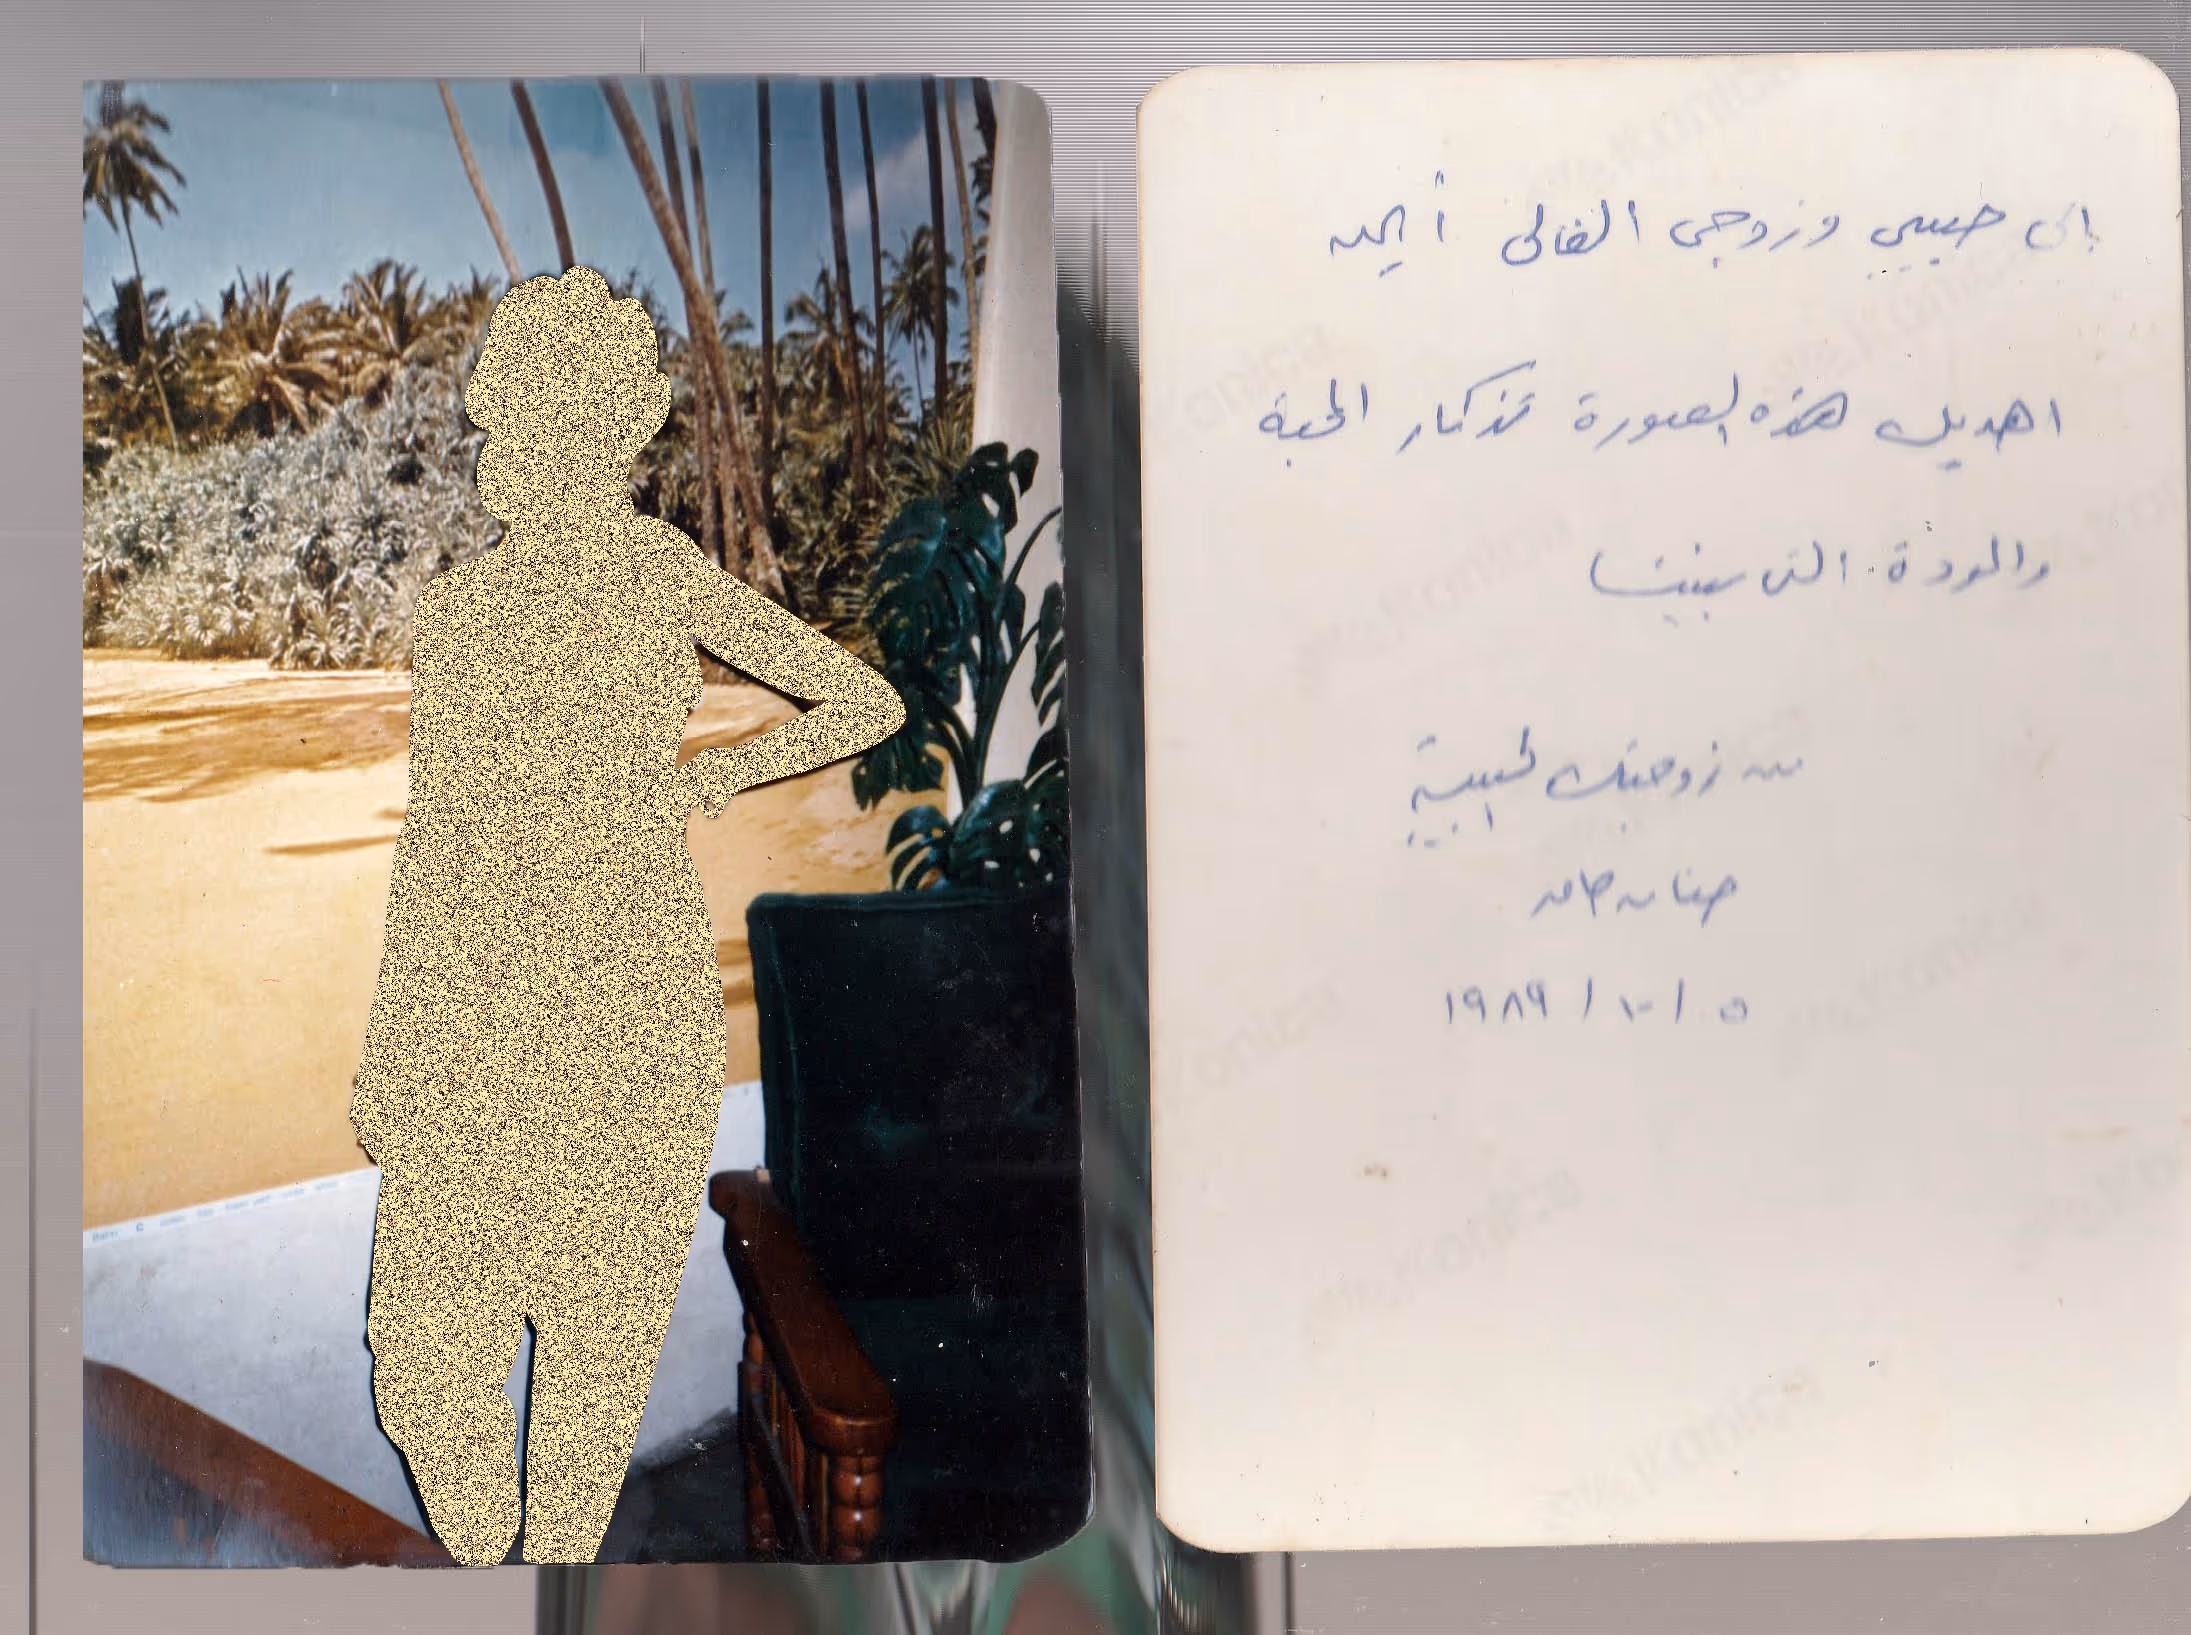 إلى حبيبي وزوجي الغالي أيمن
اهديك هذه الصورة تذكار المحبة
والمودة التي بيننا
من زوجتك الحبيبة
٥ / ١٠ / ١٩٨٩